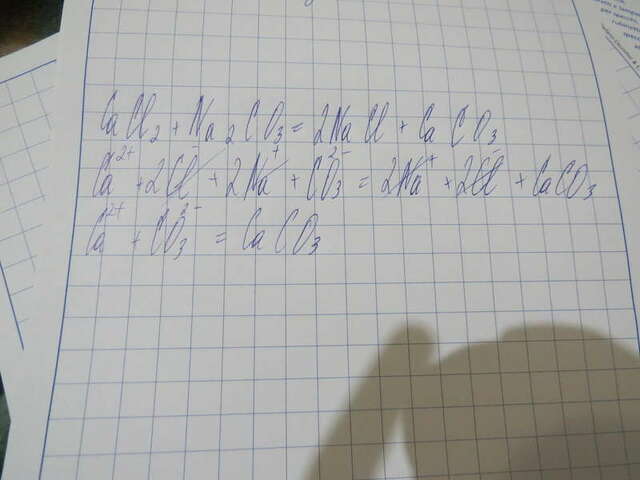 CaCl₂ + Na₂CO₃ = 2NaCl + CaCO₃
Ca²⁺ + 2Cl⁻ + 2Na⁺ + CO₃²⁻ = 2Na⁺ + 2Cl⁻ + CaCO₃
Ca²⁺ + CO₃²⁻ = CaCO₃